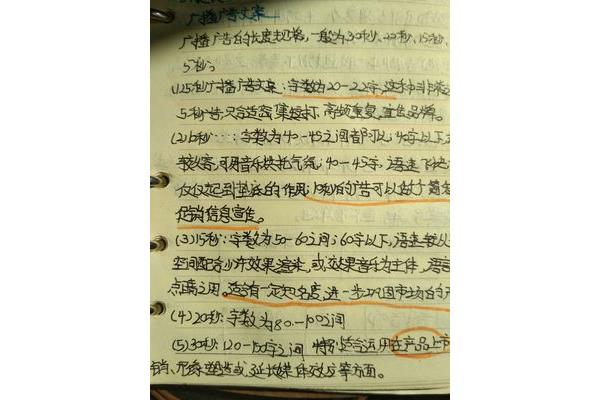 广播广告文案
广播广告的长度规格，一般为30秒、20秒、15秒、
5秒。
(1)5秒广播广告文案：字数为20-22字，这种非常
5秒广告只合适密集轰打、高频重复，宣传品牌。
(2)10秒…：字数为40-45之间都可以；40字以下
较从容，可用音乐烘托气氛；40-45字，语速
仅仅起到垫底的作用；10秒的广告可以做
促销信息宣传。
(3)15秒：字数为50-60之间；60字以下，语速较从
空间配合少许效果渲染，或效果音乐为主体，语言
点睛之用。适合有一定知名度，进一步巩固市场的产
(4)20秒：字数为80-100之间
(5)30秒：120-150字之间 特别适合运用在产品上市
销、形象塑造或延长媒体效应等方面。